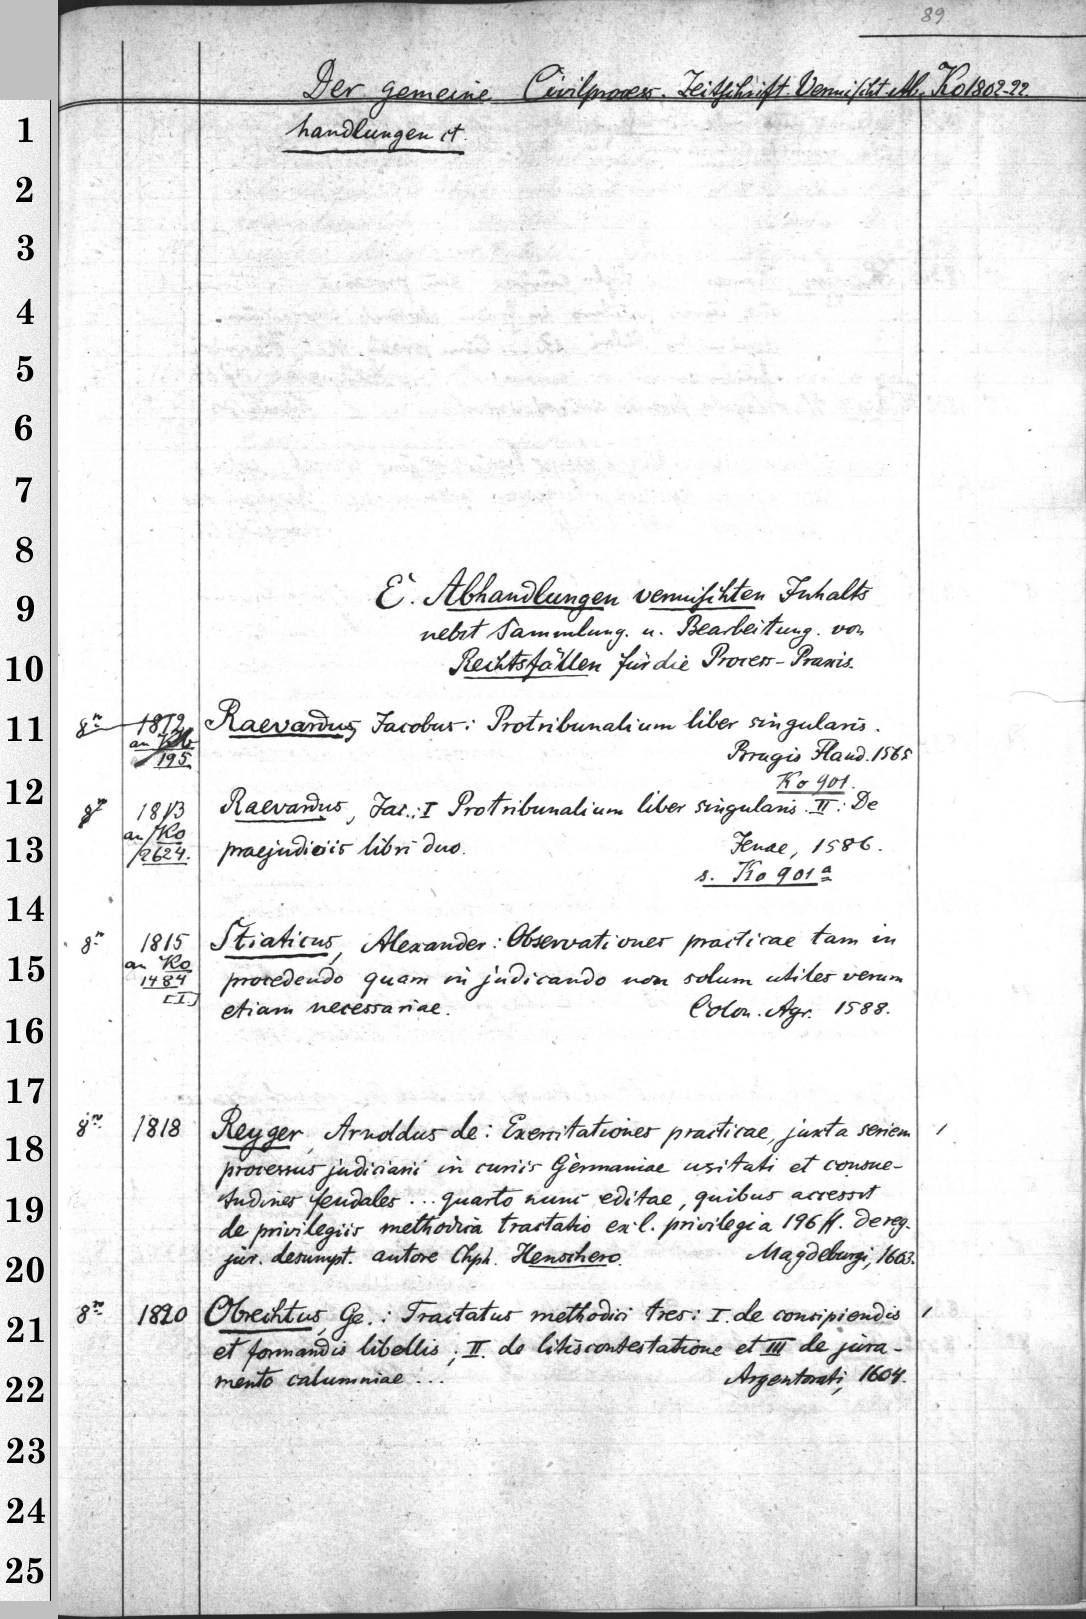 89
Der gemeine Civilprocess. Zeitschrift. Vermischt. Ab- Ko 1802-22.
handlungen ct.
1
2
3
4
5
6
7
8
9
10
11
12
13
14
15
16
17
18
19
20
21
22
23
24
25
E. Abhandlungen vermischten Inhalts
nebst Sammlung. u. Bearbeitung. von
Rechtsfällen für die Process-Praxis.
8n 1812 Raevardus, Jacobus: Protribunalium liber singularis.
an
195. Brugis Fland. 1565
Ko 901.
8n 1813 Raevardus, Jac.: I Protribunalium liber singularis. II.: De
an Ko
2624. praejudiciis libri duo. Jenae, 1586.
s. Ko 901a
8n 1815 Stiaticus, Alexander: Observationes practicae tam in
an Ko
1484 procedendo quam in judicando non solum utiles verum
[I.] etiam necessariae. Colon. Agr. 1588.
8n 1818 Reyger, Arnoldus de: Exercitationes practicae, juxta seriem
processus judiciarii in curiis Germaniae usitati et consue-
tudines feudales ... quarto nunc editae, quibus accessit
de privilegiis methodica tractatio ex l. privilegia 196 ff. de reg.
jur. desumpt. autore Chph. Henschero. Magdeburgi, 1603.
8n 1820 Obrechtus, Ge.: Tractatus methodici tres: I. de concipiendis
et formandis libellis; II. de litiscontestatione et III de jura-
mento calumniae ... Argentorati, 1604.